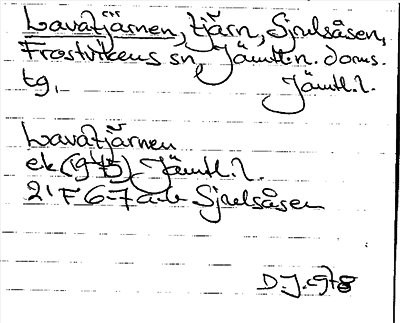 Lavatjärnen, tjärn, Sjulsåsen,
Frostvikens sn, Jämtl. n. doms.
tg, Jämtl. l.
Lavatjärnen
ek (975) Jämtl. l.
21 F 6-7 a-b Sjulsåsen
D.J. 978